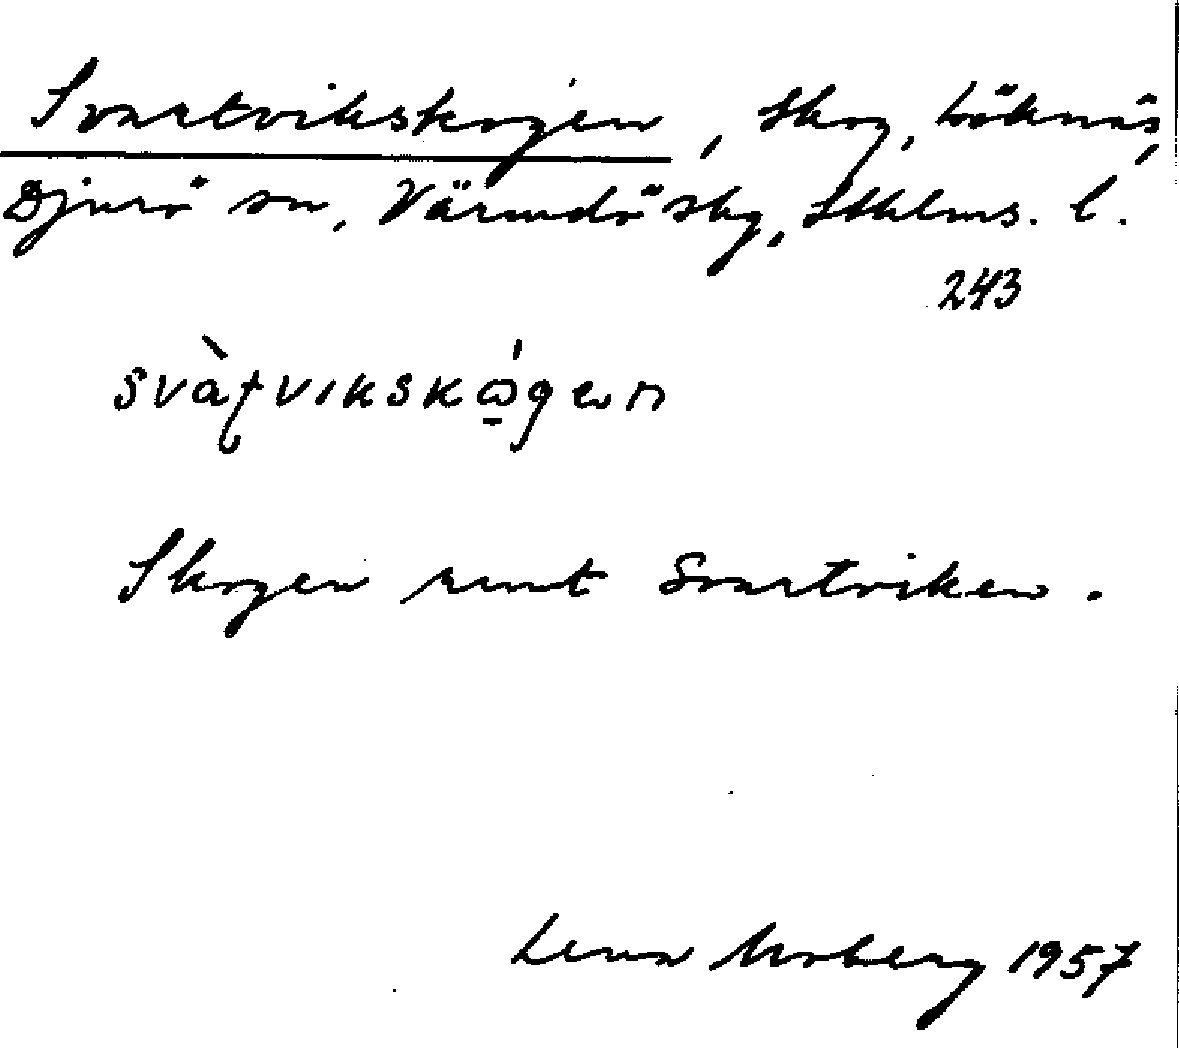 Svartvikskogen, Skog, Löknäs,
Djurö sn, Värmdö skg, Sthlms. l.
243
Skogen runt Svartviken.
Lena Moberg 1957